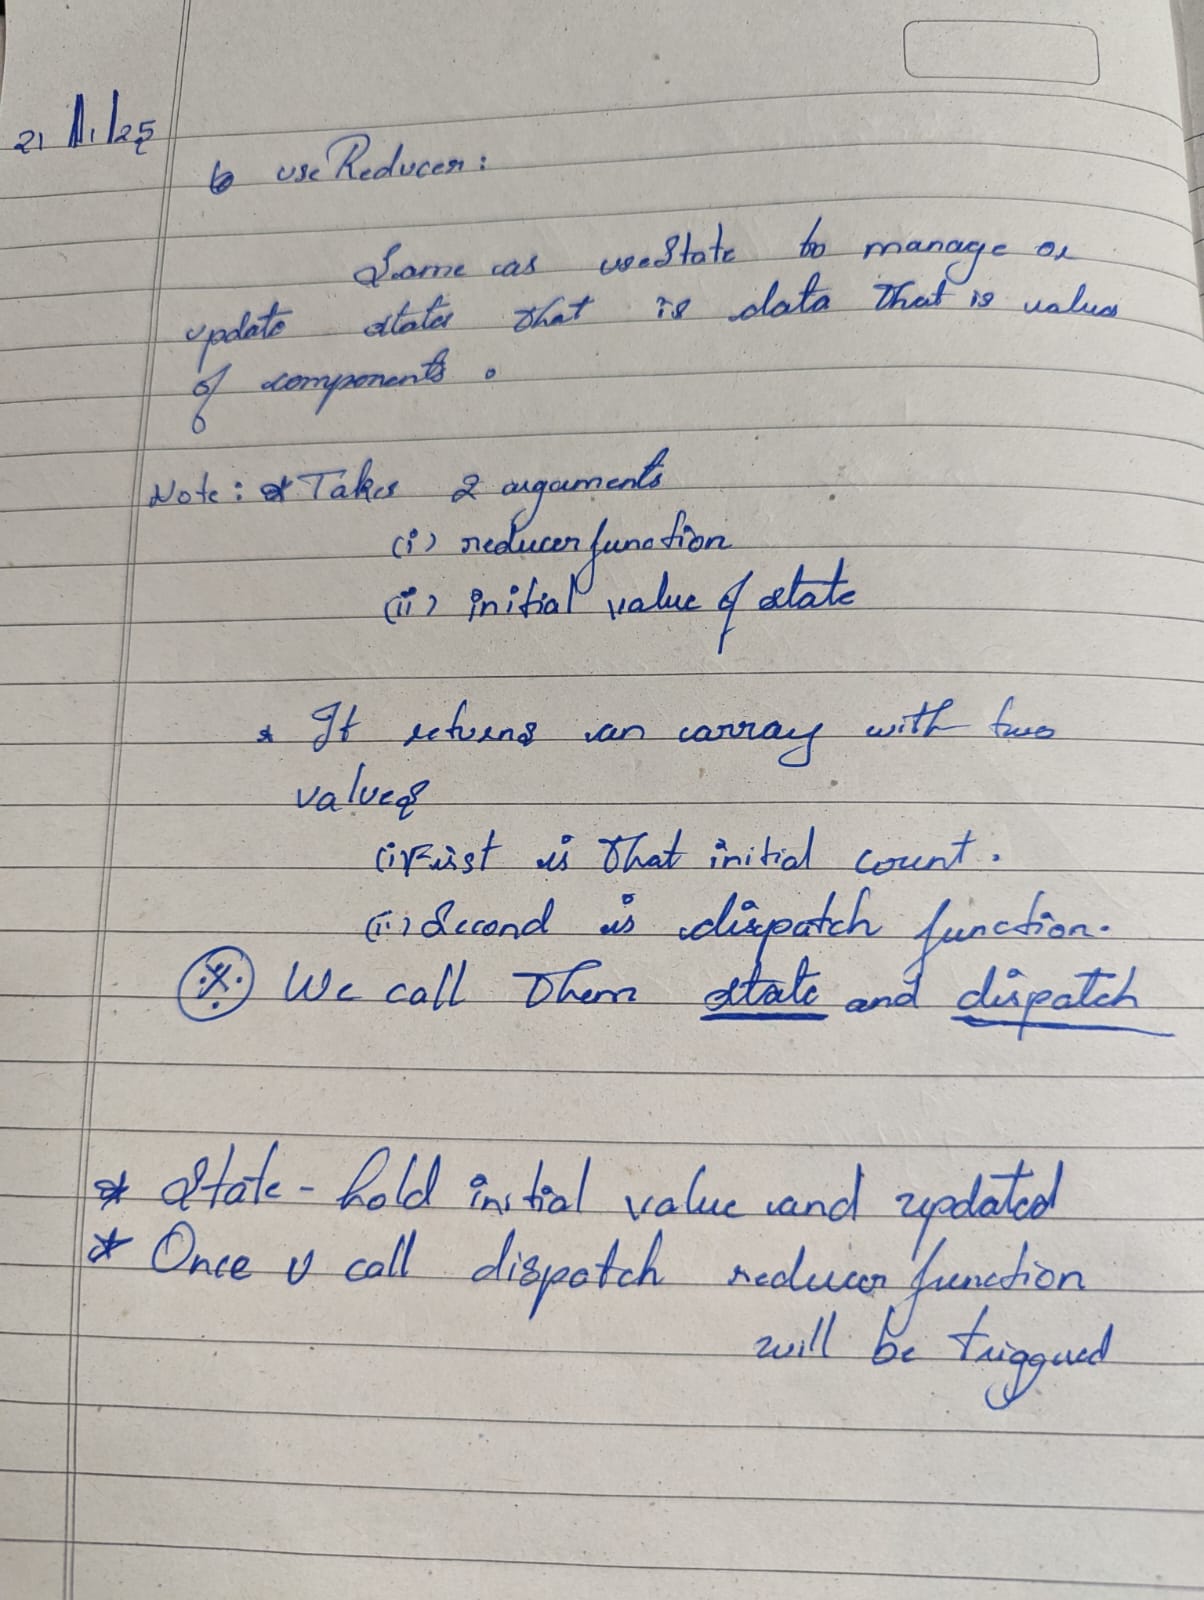 21/1/25
6 useReducer:
Same as useState to manage or
update states that is data that is values
of components.
Note: * Takes 2 arguments
(i) reducer function
(ii) initial value of state
* It returns an array with two
values
(i) First is that initial count.
(ii) Second is dispatch function.
※ We call them state and dispatch
* State - hold initial value and updated
* Once u call dispatch reducer function
will be triggered